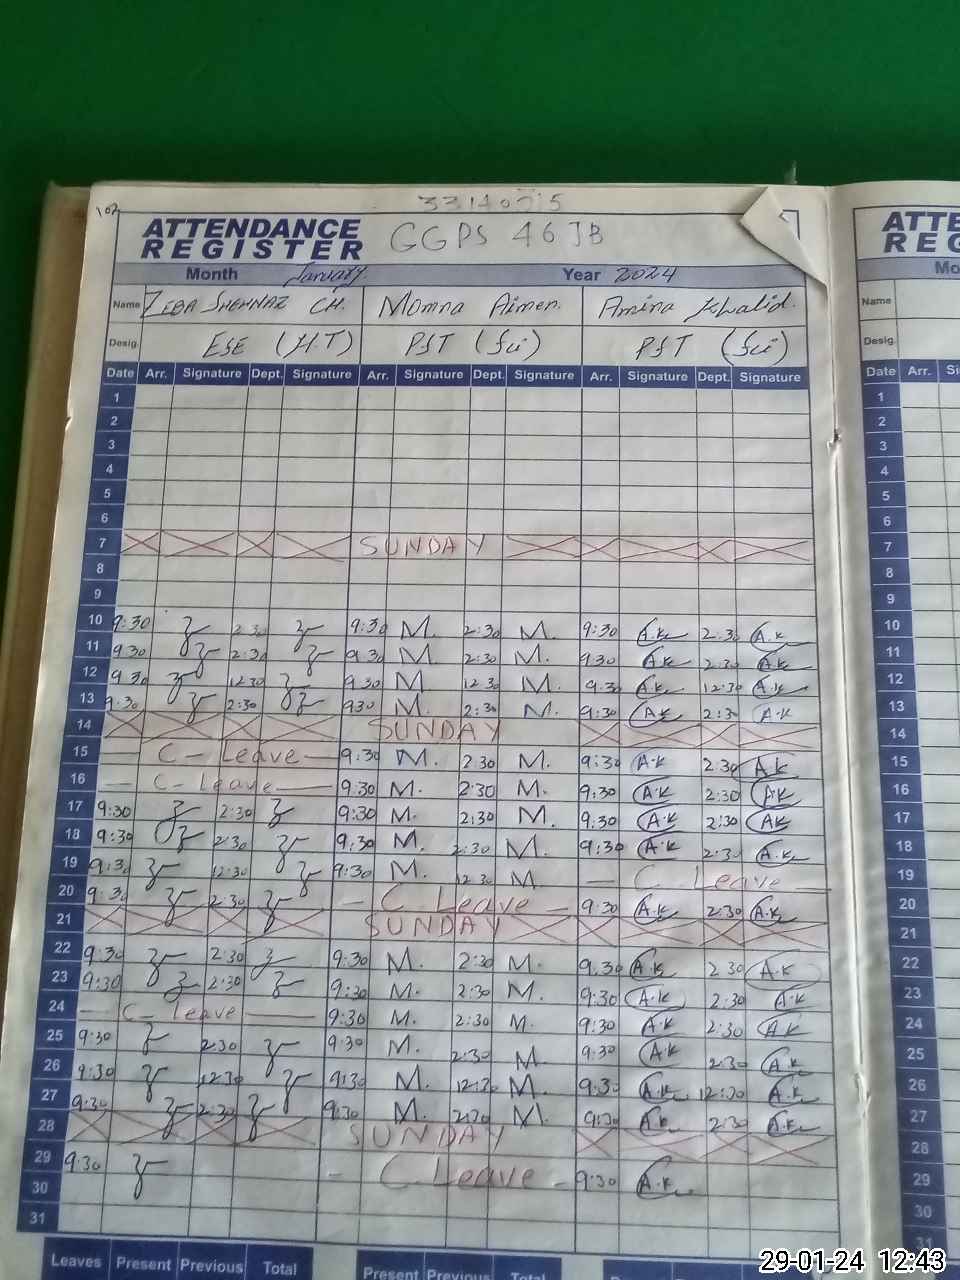 102
33140715
ATTENDANCE REGISTER GGPS 46 JB
Month January Year 2024
Name ZEBA SHEHNAZ CH. Momna Aimen. Amina Khalid.
Desig. ESE (H.T) PST (Sci) PST (Sci)
Date Arr. Signature Dept. Signature Arr. Signature Dept. Signature Arr. Signature Dept. Signature
1
2
3
4
5
6
7 SUNDAY
8
9
10 9:30 2:30 9:30 M. 2:30 M. 9:30 A.K 2:30 A.K
11 9:30 2:30 9:30 M. 2:30 M. 9:30 A.K 2:30 A.K
12 9:30 12:30 9:30 M 12:30 M. 9:30 A.K 12:30 A.K
13 9:30 2:30 9:30 M. 2:30 M. 9:30 A.K 2:30 A.K
14 SUNDAY
15 — C- Leave — 9:30 M. 2:30 M. 9:30 A.K 2:30 A.K
16 — C- Leave — 9:30 M. 2:30 M. 9:30 A.K 2:30 A.K
17 9:30 2:30 9:30 M. 2:30 M. 9:30 A.K 2:30 A.K
18 9:30 2:30 9:30 M. 2:30 M. 9:30 A.K 2:30 A.K
19 9:30 12:30 9:30 M. 12:30 M — C Leave —
20 9:30 2:30 - C Leave - 9:30 A.K 2:30 A.K
21 SUNDAY
22 9:30 2:30 9:30 M. 2:30 M. 9:30 A.K 2:30 A.K
23 9:30 2:30 9:30 M. 2:30 M. 9:30 A.K 2:30 A.K
24 — C- Leave — 9:30 M. 2:30 M. 9:30 A.K 2:30 A.K
25 9:30 2:30 9:30 M. 2:30 M. 9:30 A.K 2:30 A.K
26 9:30 12:30 9:30 M. 12:30 M. 9:30 A.K 12:30 A.K
27 9:30 2:30 9:30 M. 2:30 M. 9:30 A.K 2:30 A.K
28 SUNDAY
29 9:30 - C Leave - 9:30 A.K
30
31
Leaves Present Previous Total Present Previous Total
ATTE
REG
Mo
Name
Desig.
Date Arr. Si
1
2
3
4
5
6
7
8
9
10
11
12
13
14
15
16
17
18
19
20
21
22
23
24
25
26
27
28
29
30
31
29-01-24 12:43